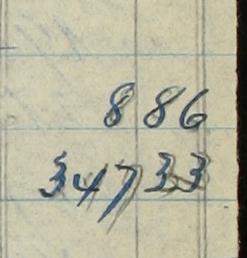 886
34733